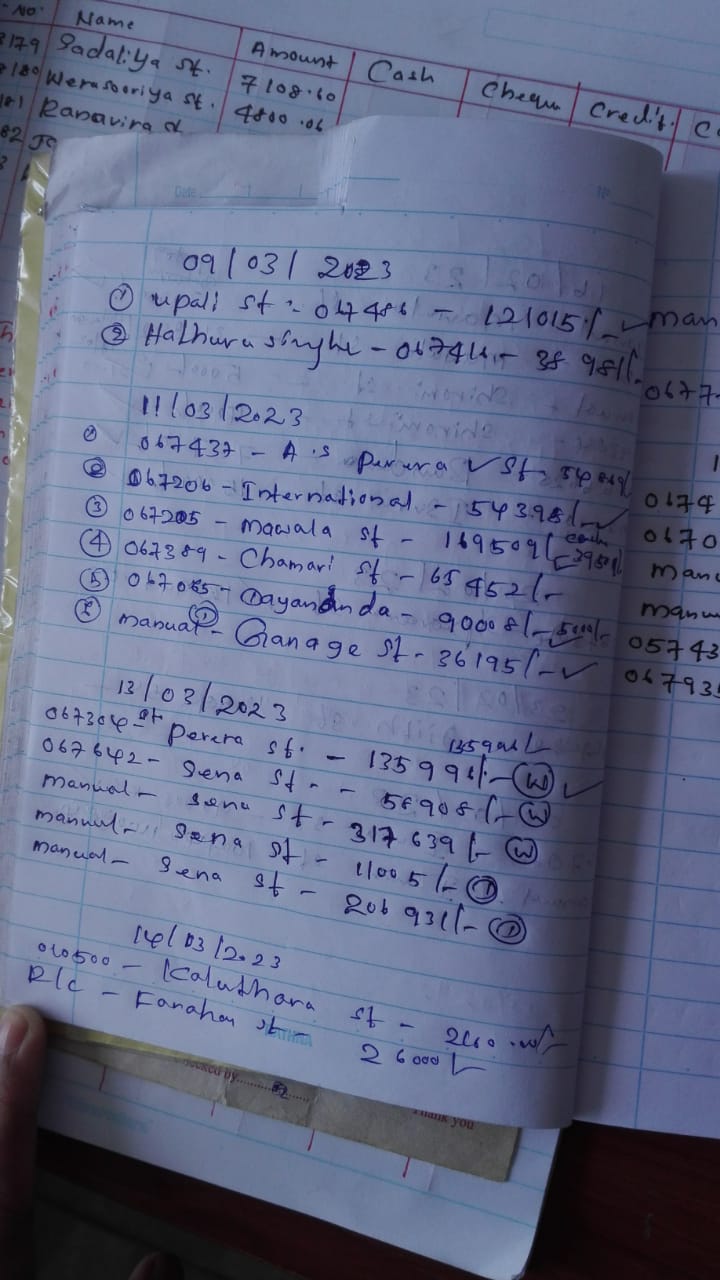 No. Name Amount Cash Cheque Credit.
3179 Sadaliya st. 7108.60
8180 Werasooriya st. 4800.06
181 Ranavira st
82
3
Date
09/03/2023
① upali st :- 067486 - 121015/- ✓
② Hathurusinghe - 067414 - 38981/-
11/03/2023
① 067437 - A.S perera ✓ st-
② 067206 - International - 54398/- ✓
③ 067205 - mawala st - 169509/- cash 39509/-
④ 067389 - Chamari st - 65452/-
⑤ 067065 - Dayananda - 90008/- 5000/-
manual - ① Ganage st - 36195/- ✓
13/03/2023
067304 - perera st. - 135998/- Ⓦ ✓
067642 - Sena st - - 56908/- Ⓦ
manual - sena st - 317639/- Ⓦ
manual - Sena st - 11005/- ①
manual - Sena st - 206931/- ①
14/03/2023
010500 - Kaluthara st -
R/C - st - 26000/-
man
0677
0674
0670
manu
manu
05743
06793
Thank you